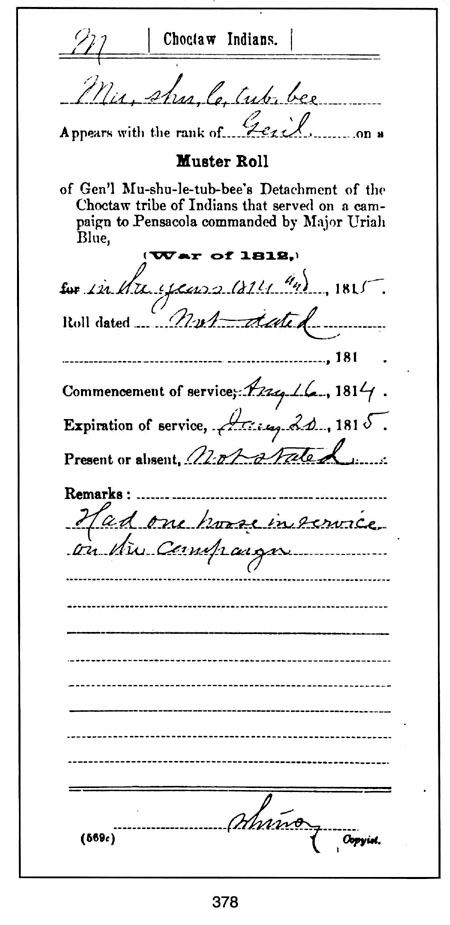 M | Choctaw Indians. |
Mu, shu, le, tub, bee
Appears with the rank of Genl. on a
Muster Roll
of Gen'l Mu-shu-le-tub-bee's Detachment of the
Choctaw tribe of Indians that served on a cam-
paign to Pensacola commanded by Major Uriah
Blue,
(War of 1812,)
for in the years 1814 and, 1815.
Roll dated Not dated
, 181 .
Commencement of service, Aug 16, 1814.
Expiration of service, Jany 20, 1815.
Present or absent, Not stated
Remarks:
Had one horse in service
on the campaign
(569c) Copyist.
378